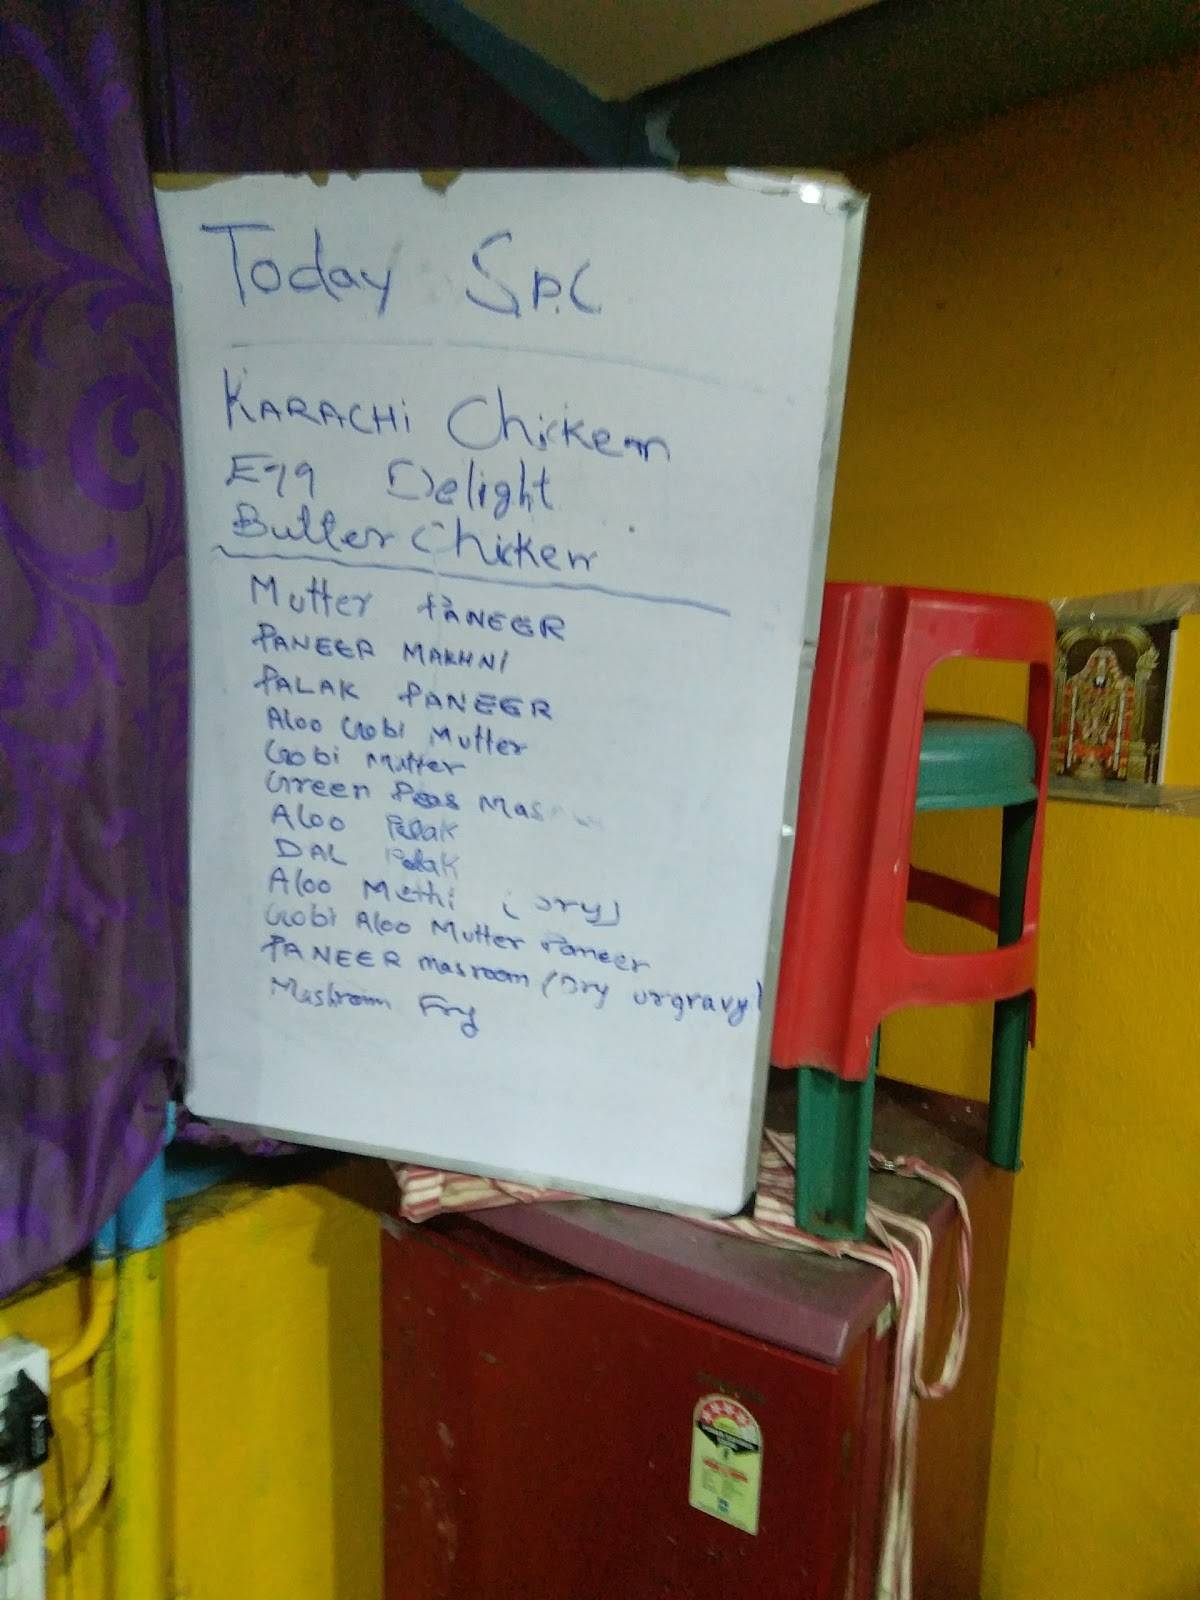 Today SP.C
KARACHi Chickenn
Egg Delight
Butter Chicken
Mutter PANEER
PANEER MAKHNI
PALAK PANEER
Aloo Gobi Mutter
Gobi Mutter
Green Peas
Aloo Palak
DAL Palak
Aloo Methi (Dry)
Gobi Aloo Mutter Paneer
PANEER masroom (Dry urgravy)
Mashroim Fry